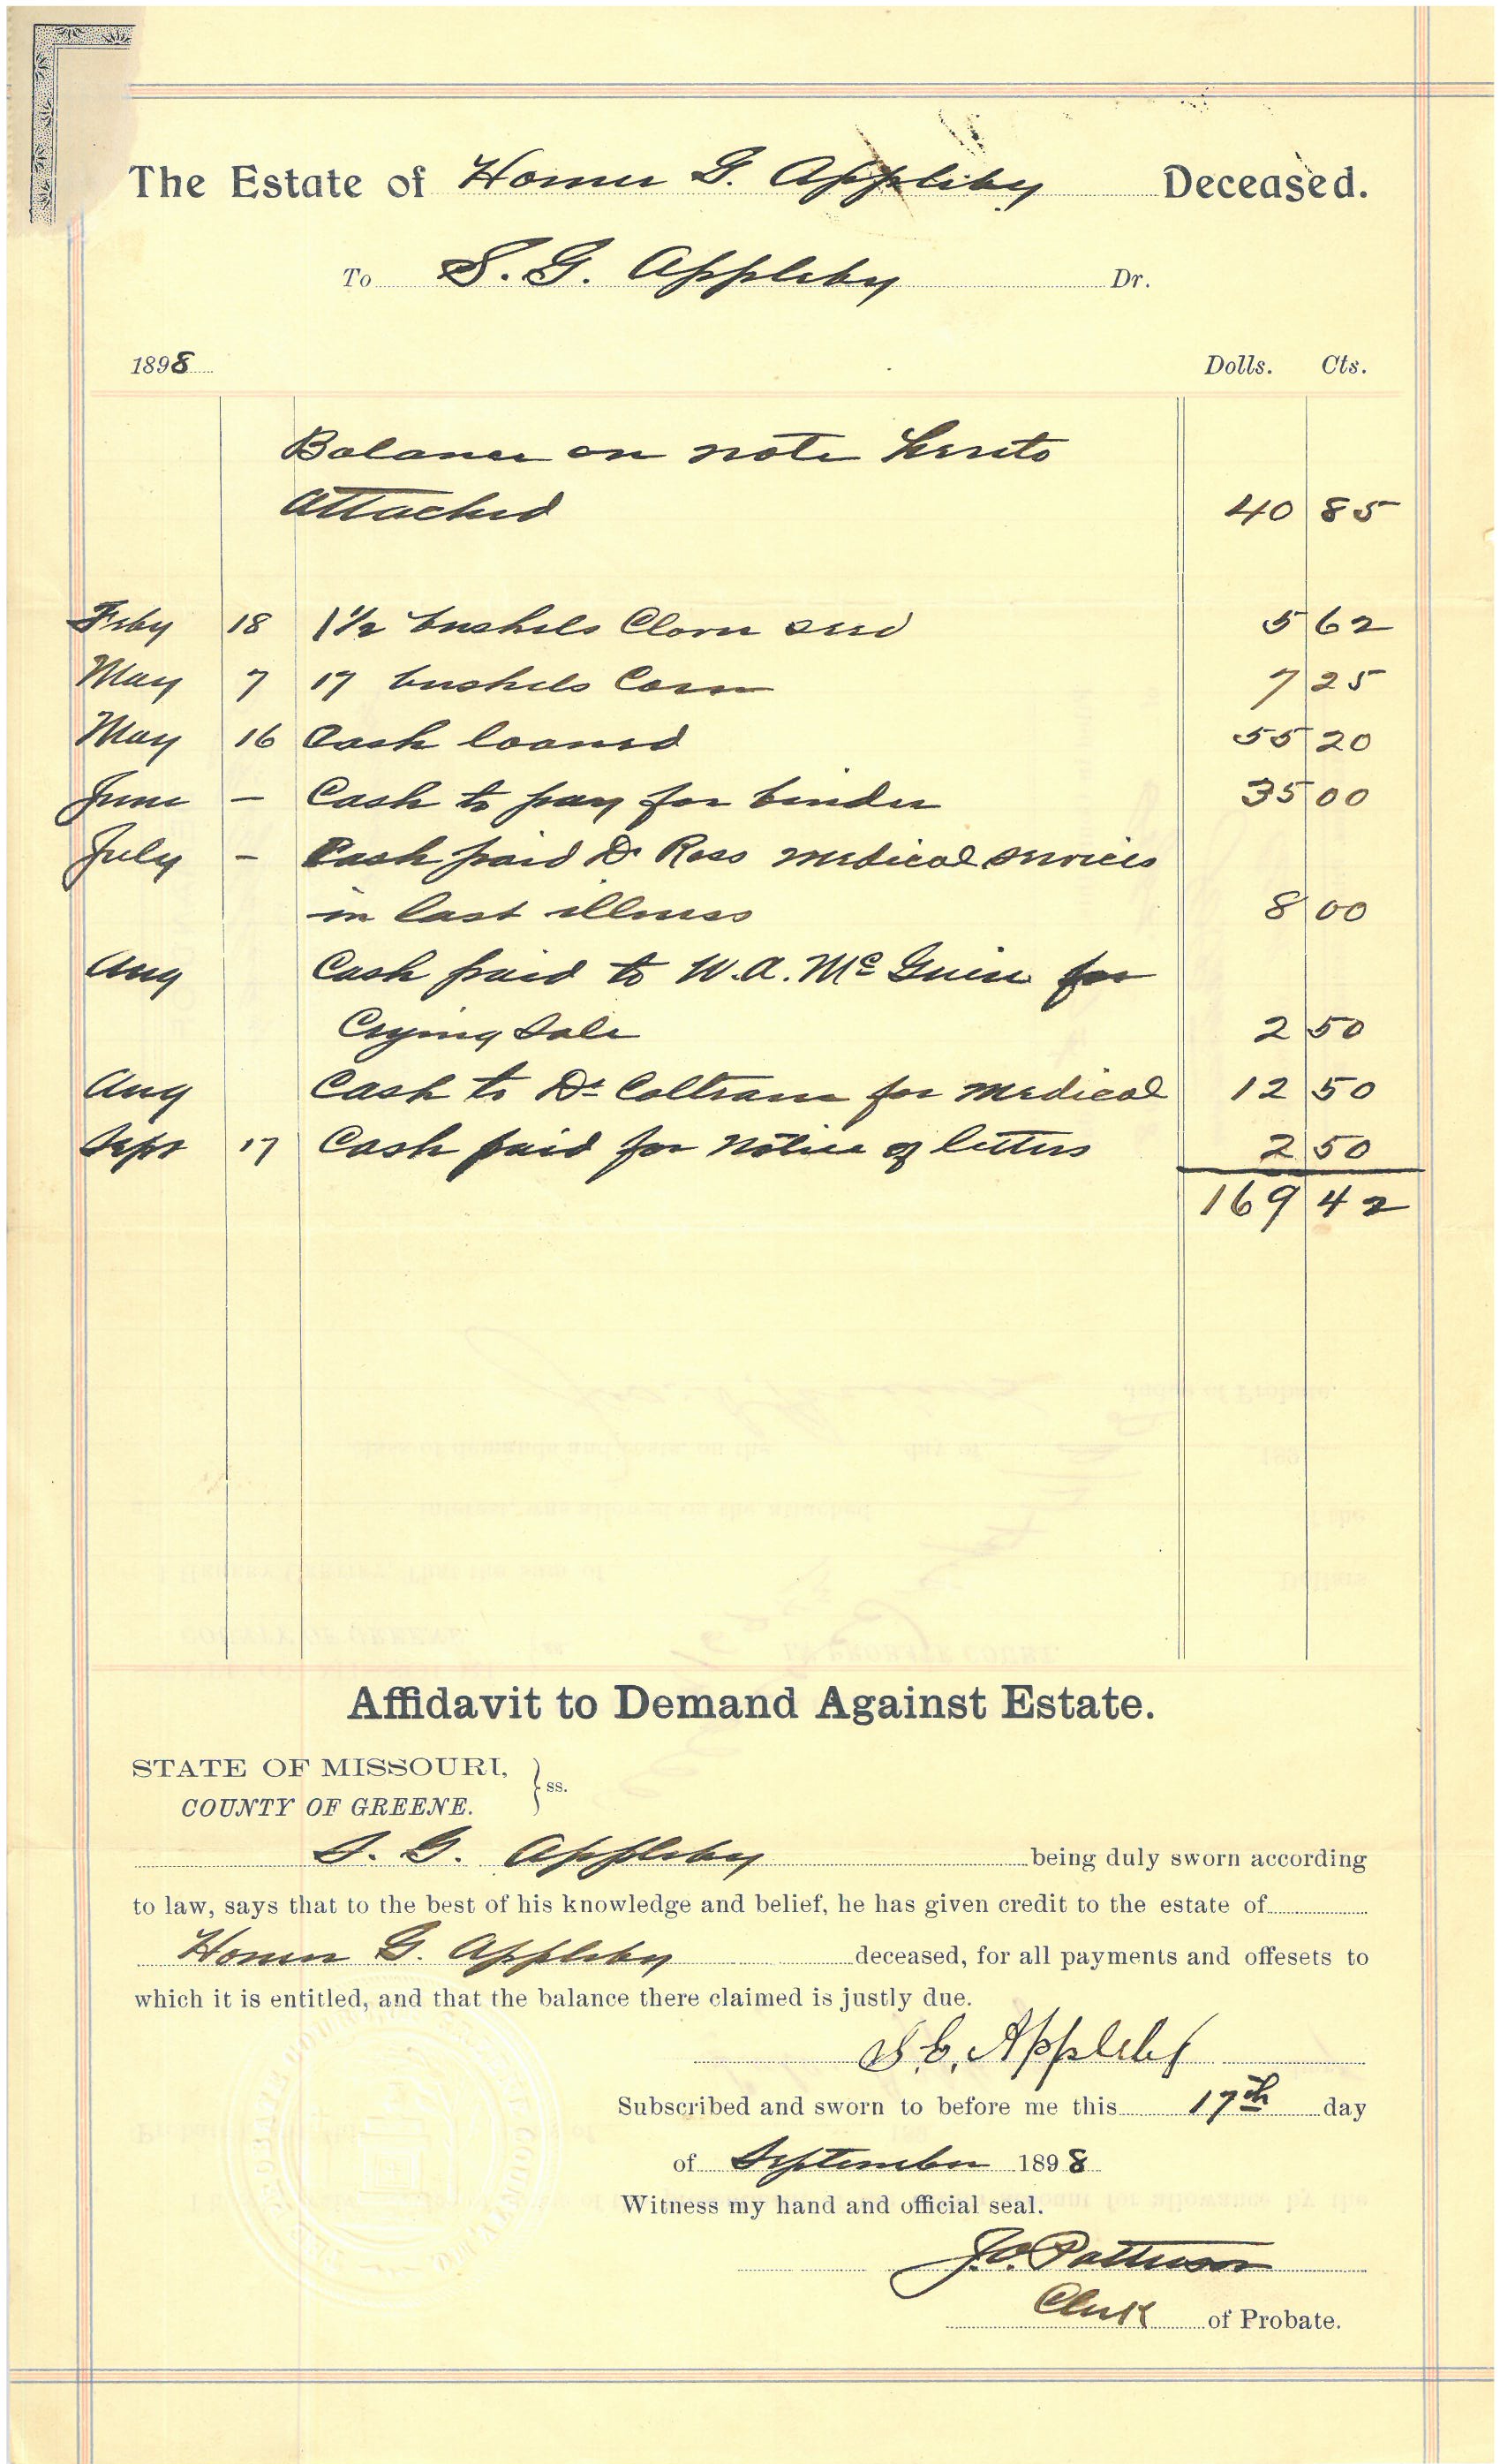 The Estate of Homer G. Appleby Deceased.
To S. G. Appleby Dr.
1898 Dolls. Cts.
Balance on note hereto
attached 40 85
Feby 18 1 1/2 bushels Clover seed 5 62
May 7 17 bushels Corn 7 25
May 16 Cash loaned 55 20
June - Cash to pay for binder 35 00
July - Cash paid Dr Ross medical services
in last illness 8 00
Aug Cash paid to W. A. Mc Guire for
Crying Sale 2 50
Aug Cash to Dr Coltrane for medical 12 50
Sept 17 Cash paid for notice of letters 2 50
169 42
Affidavit to Demand Against Estate.
STATE OF MISSOURI, } ss.
COUNTY OF GREENE.
S. G. Appleby being duly sworn according
to law, says that to the best of his knowledge and belief, he has given credit to the estate of
Homer G. Appleby deceased, for all payments and offesets to
which it is entitled, and that the balance there claimed is justly due.
S. G. Appleby
Subscribed and sworn to before me this 17th day
of September 1898
Witness my hand and official seal.
J. O. Patterson
Clerk of Probate.